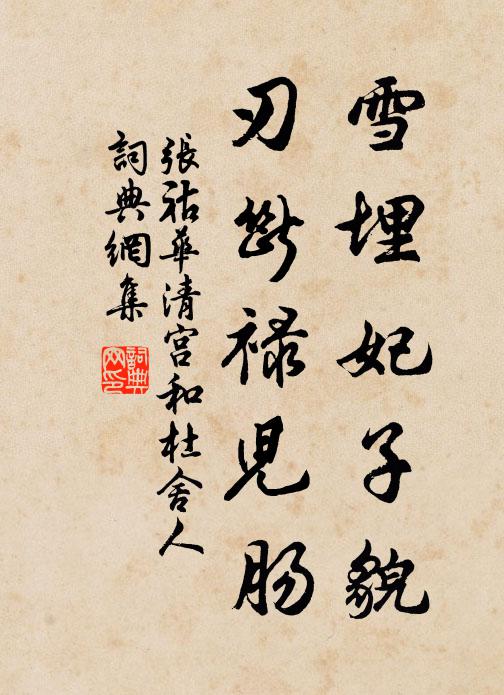 雪埋妃子貌
刃斷祿兒腸
張祜華清宮和杜舍人
詞典網集
詞典網印